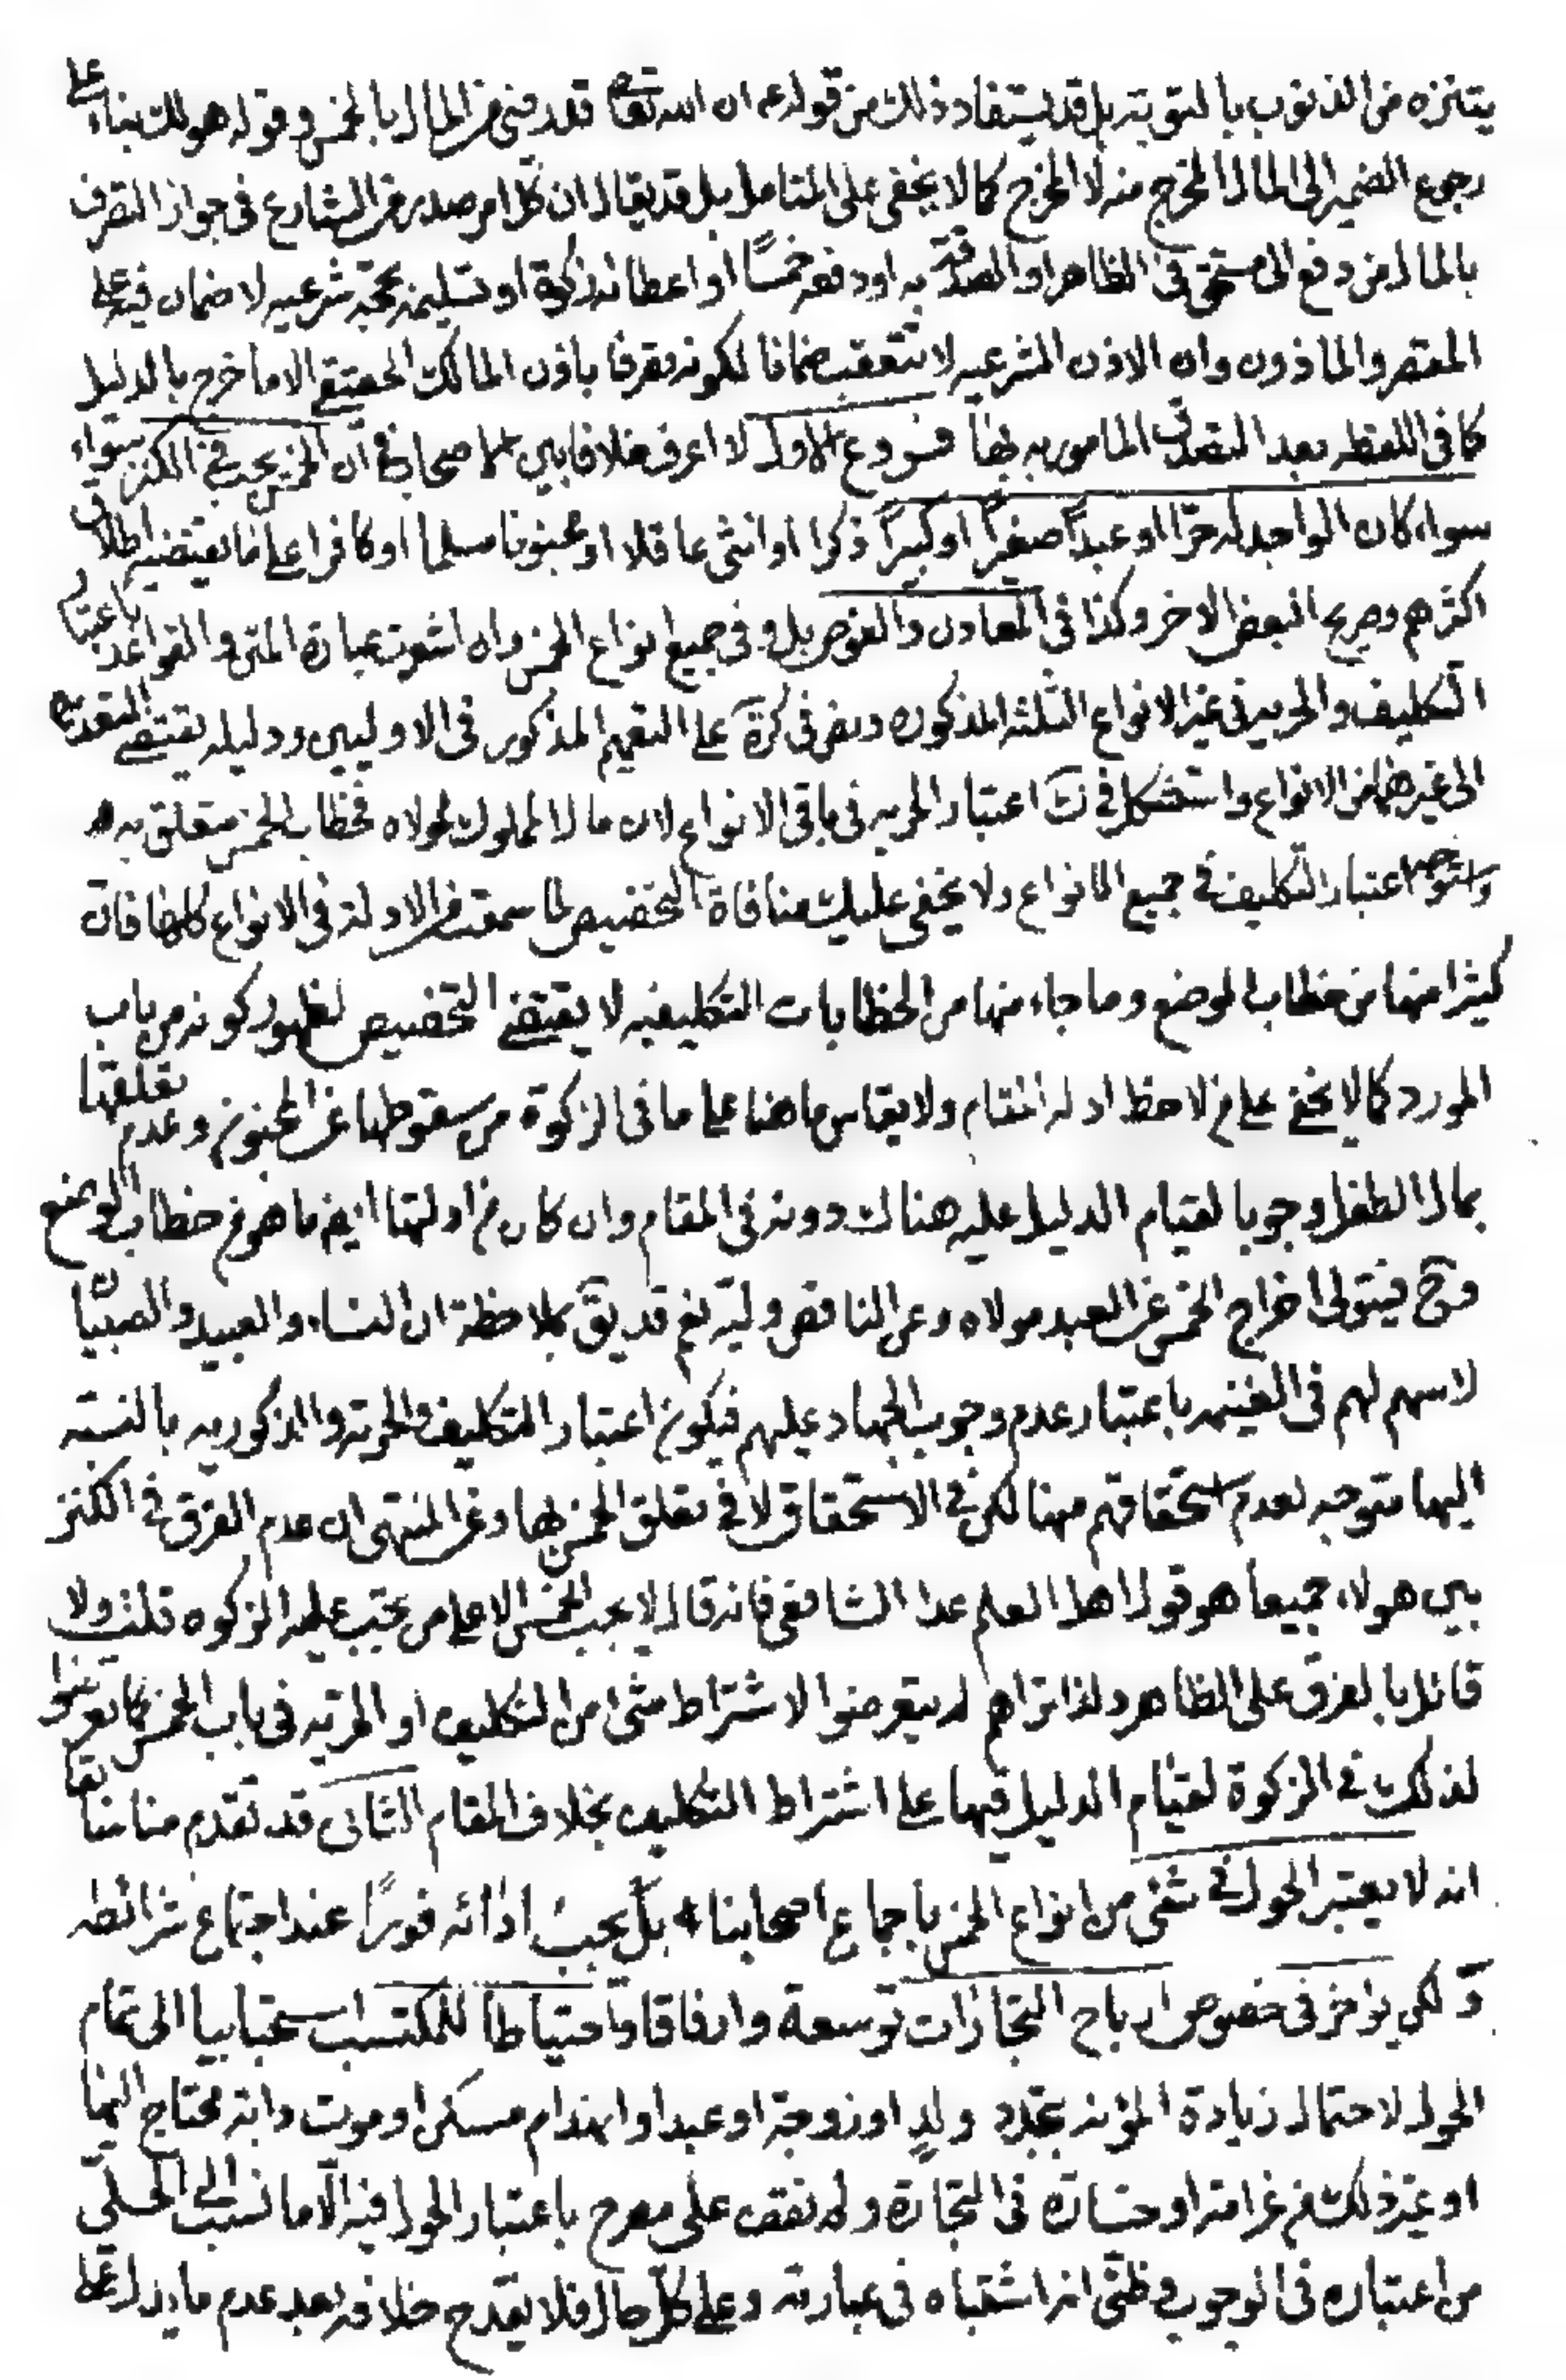 يتنزه من الذنوب بالتوبة بل قد يستفاد ذلك من قوله ع ان الله تعالى قد رضى من المال بالخمس وقوله هو لك بناء على
رجوع الضمير الى المال المخرج منه لا المخرج كما لا يخفى على المتامل بل قد يقال ان كل امر صدر من الشارع فى جواز التصرف
بالمال من دفع الى مستحق فى الظاهر او الصدقة به او دفعه خمسًا او اعطائه زكوة او تسليمه بحجة شرعيه لا ضمان فيه على
المتصرف والماذون وان الاذن الشرعيه لا تتعقب ضمانا لكونه تصرفا باذن المالك الحقيقي الا ما خرج بالدليل
كما فى اللقطه بعد التصدق المامور به بها فروع الاول لا اعرف خلافا بين اصحابنا فى ان الخمس يجب فى الكنز سواء
سواء كان الواجد له حرّا او عبدًا صغيرًا او كبيرًا ذكرا او انثى عاقلا او مجنونا مسلما او كافرا على ما يقتضيه اطلاق
اكثرهم وصريح البعض الاخر وكذا فى المعادن والغوص بل وفى جميع انواع الخمس وان اشعرت عبارة المتن والقواعد باعتبار
التكليف والحريه فى غير الانواع الثلثه المذكوره ونص فى كرة على التعميم المذكور فى الاوليين ودليله يقتضى التعدية
الى غيرهما من الانواع واستشكل فى ك اعتبار الحريه فى باقى الانواع لان مال المملوك لمولاه فخطاب الخمس متعلق به
واستوجه اعتبار التكليف فى جميع الانواع ولا يخفى عليك منافاة التخصيص لما سمعت من الادلة فى الانواع كلها فان
كثيرا منها من خطاب الوضع وما جاء منها من الخطابات التكليفيه لا يقتضى التخصيص لظهور كونه من باب
المورد كما لا يخفى على من لاحظ ادلة المقام ولا يقاس ما هنا على ما فى الزكوة من سقوطها عن المجنون وعدم تعلقها
بمال الطفل وجوبا لقيام الدليل عليه هناك دونه فى المقام وان كان من ادلتها ايض ما هو من خطاب الوضع
وح فيتولى اخراج الخمس عن العبد مولاه وعن الناقص وليّه نعم قد يق بملاحظة ان النساء والعبيد والصبيان
لا سهم لهم فى الغنيمه باعتبار عدم وجوب الجهاد عليهم فيكون اعتبار التكليف والحرية والذكوريه بالنسبه
اليها متوجه لعدم استحقاقهم منها لكن فى الاستحقاق لا فى تعلق الخمس بها وعن المنتهى ان عدم الفرق فى الكنز
بين هولاء جميعا هو قول اهل العلم عدا الشافعى فانه قال لا يجب الخمس الا على من يجب عليه الزكوه قلت ولا
قائل بالفرق على الظاهر ولذا تراهم لم يتعرضوا لاشتراط شئ من التكليف او الحريه فى باب الخمس كما تعرضوا
لذلك فى الزكوة لقيام الدليل فيها على اشتراط التكليف بخلاف المقام الثانى قد تقدم منا سابقا
انه لا يعتبر الحول فى شئ من انواع الخمس باجماع اصحابنا بل يجب ادائه فورًا عند اجتماع شرائطه
و لكن يؤخر فى خصوص ارباح التجارات توسعة وارفاقا واحتياطا للمكتسب استحبابيا الى تمام
الحول لاحتمال زيادة المؤنه بتجدد ولدٍ او زوجة او عبد او انهدام مسكن او موت دابة محتاج اليها
او غير ذلك من غرامة او خسارة فى التجارة ولم نقف على مصرح باعتبار الحول فيه الا ما نسب الى الحلي
من اعتباره فى الوجوب وظنى انه اشتباه فى عبارته وعلى كل حال فلا يقدح خلافه بعد عدم ما يدل على